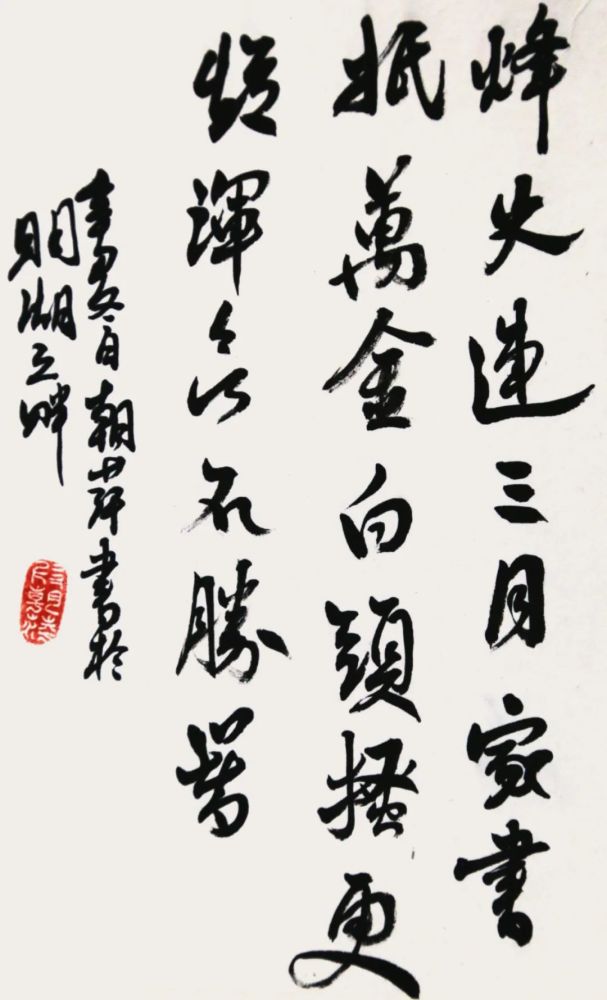 烽火連三月家書
抵萬金白頭搔更
短渾欲不勝簪
冬日朝書於
明湖之畔